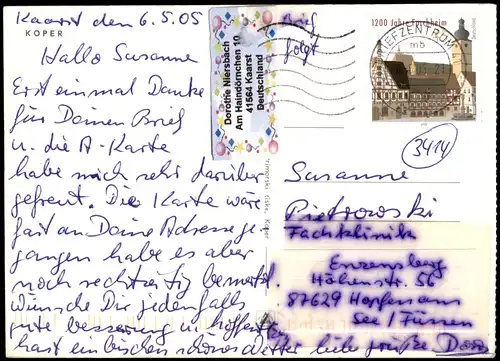 Kaarst den 6.5.05
KOPER
Hallo Susanne
Erst einmal Danke
für Deinen Brief
u. die A-Karte
habe mich sehr darüber
gefreut. Die Karte wäre
fast an Deine Adresse ge-
gangen habe es aber
noch rechtzeitig bemerkt.
wünsche Dir jedenfalls
gute besserung u. hoffentl.
hast ein bischen schönes Wetter liebe grüße Doro
Dorothe Niersbach
Am Haindörnchen 10
41564 Kaarst
Deutschland
Brief
folgt
1200 Jahre Forchheim
BRIEFZENTRUM
mb
3414
Susanne
Pietrowski
Fachklinik
Enzensberg
Höhenstr. 56
87629 Hopfen am
See / Füssen